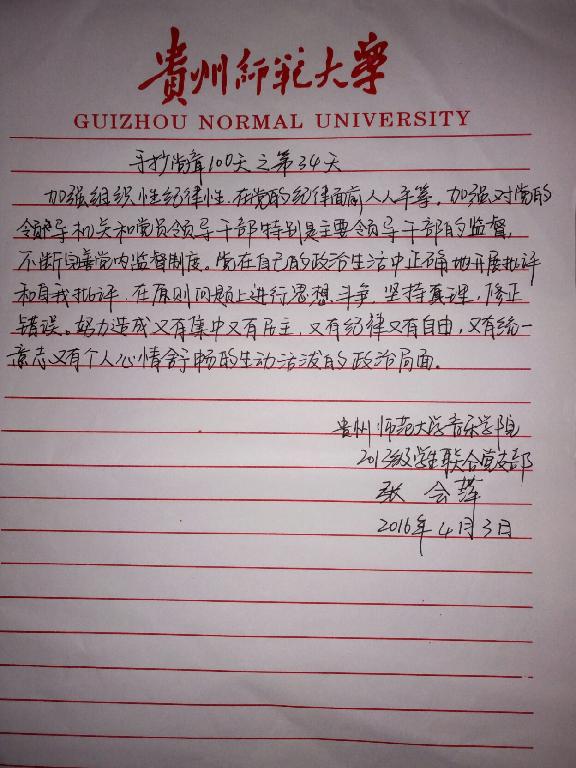 貴州師範大學
GUIZHOU NORMAL UNIVERSITY
手抄党章100天之第34天
加强组织性纪律性,在党的纪律面前人人平等。加强对党的
领导机关和党员领导干部特别是主要领导干部的监督,
不断完善党内监督制度。党在自己的政治生活中正确地开展批评
和自我批评,在原则问题上进行思想斗争,坚持真理,修正
错误。努力造成又有集中又有民主,又有纪律又有自由,又有统一
意志又有个人心情舒畅的生动活泼的政治局面。
贵州师范大学音乐学院
2013级学生联合党支部
张会萍
2016年4月3日